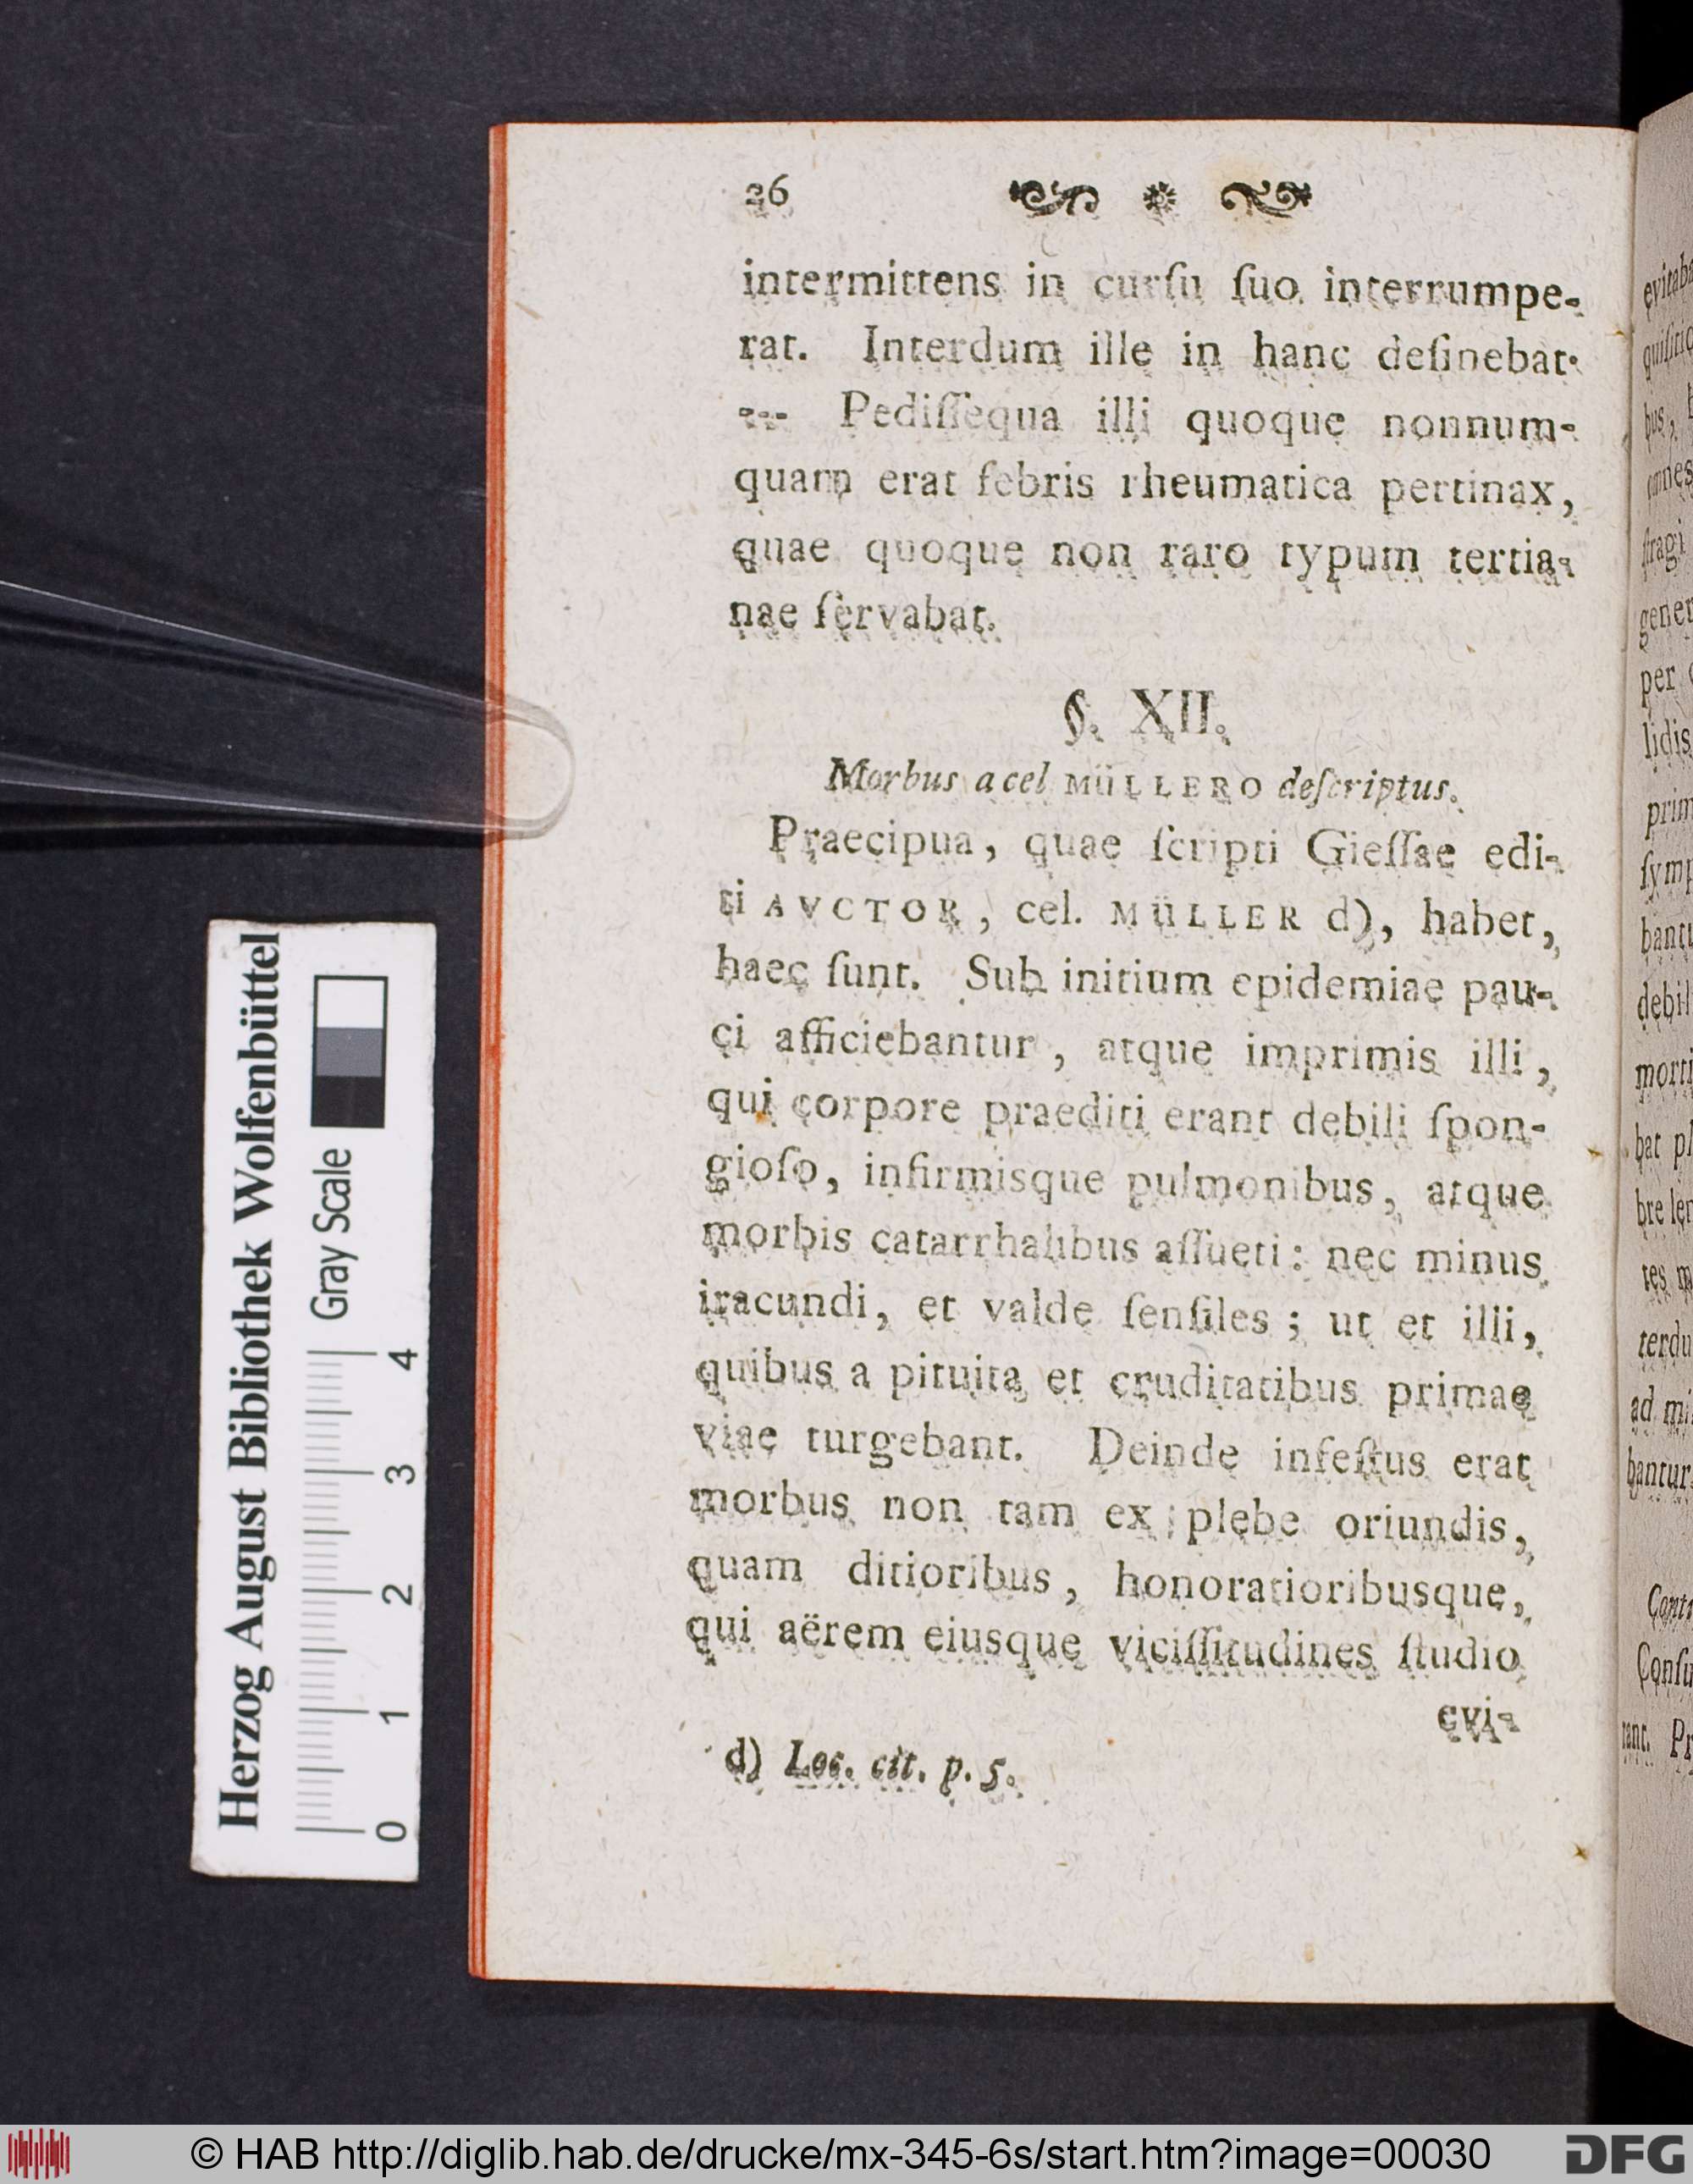 26
intermittens in curſu ſuo interrumpe-
rat. Interdum ille in hanc deſinebat.
--- Pediſſequa illi quoque nonnum-
quam erat febris rheumatica pertinax,
quae quoque non raro typum tertia-
nae ſervabat.
§. XII.
Morbus a cel MÜLLERO deſcriptus.
Praecipua, quae ſcripti Gieſſae edi-
ti AVCTOR, cel. MÜLLER d), habet,
haec ſunt. Sub initium epidemiae pau-
ci afficiebantur, atque imprimis illi,
qui corpore praediti erant debili ſpon-
gioſo, infirmisque pulmonibus, atque
morbis catarrhalibus aſſueti: nec minus
iracundi, et valde ſenſiles; ut et illi,
quibus a pituita et cruditatibus primae
viae turgebant. Deinde infeſtus erat
morbus non tam ex plebe oriundis,
quam ditioribus, honoratioribusque,
qui aërem eiusque viciſſitudines ſtudio
evi-
d) Loc. cit. p. 5.
Herzog August Bibliothek Wolfenbüttel
Gray Scale
0 1 2 3 4
quiſitio
bus,
omnes
ſtragi
gener
per
lidis
prim
ſymp
bantu
debil
morti
bat pl
bre len
tes m
terdu
ad mi
bantur
Contr
Conſu
tant. Pr
© HAB http://diglib.hab.de/drucke/mx-345-6s/start.htm?image=00030
DFG